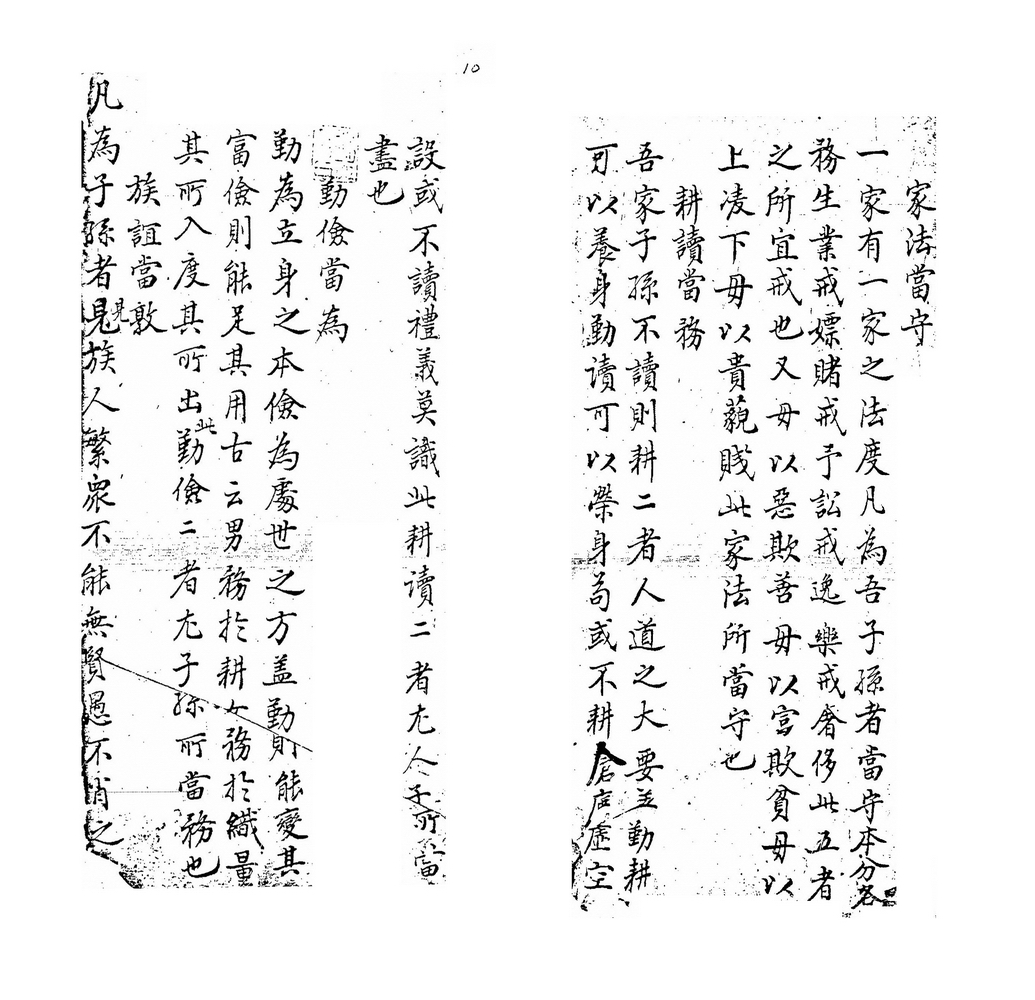 10
家法當守
一家有一家之法度凡為吾子孫者當守本分各
務生業戒嫖賭戒予訟戒逸樂戒奢侈此五者
之所宜戒也又毋以惡欺善毋以富欺貧毋以
上凌下毋以貴藐賤此家法所當守也
耕讀當務
吾家子孫不讀則耕二者人道之大要並勤耕
可以養身勤读可以榮身苟或不耕倉庒虛空
設或不讀禮義莫識此耕读二者尤人子所當
盡也
勤儉當為
勤為立身之本儉為處世之方盖勤則能變其
富儉則能足其用古云男務於耕女務於織量
其所入度其所出此勤儉二者尤子孫所當務也
族誼當敦
凡為子孫者見族人繁衆不能無賢愚不肖之